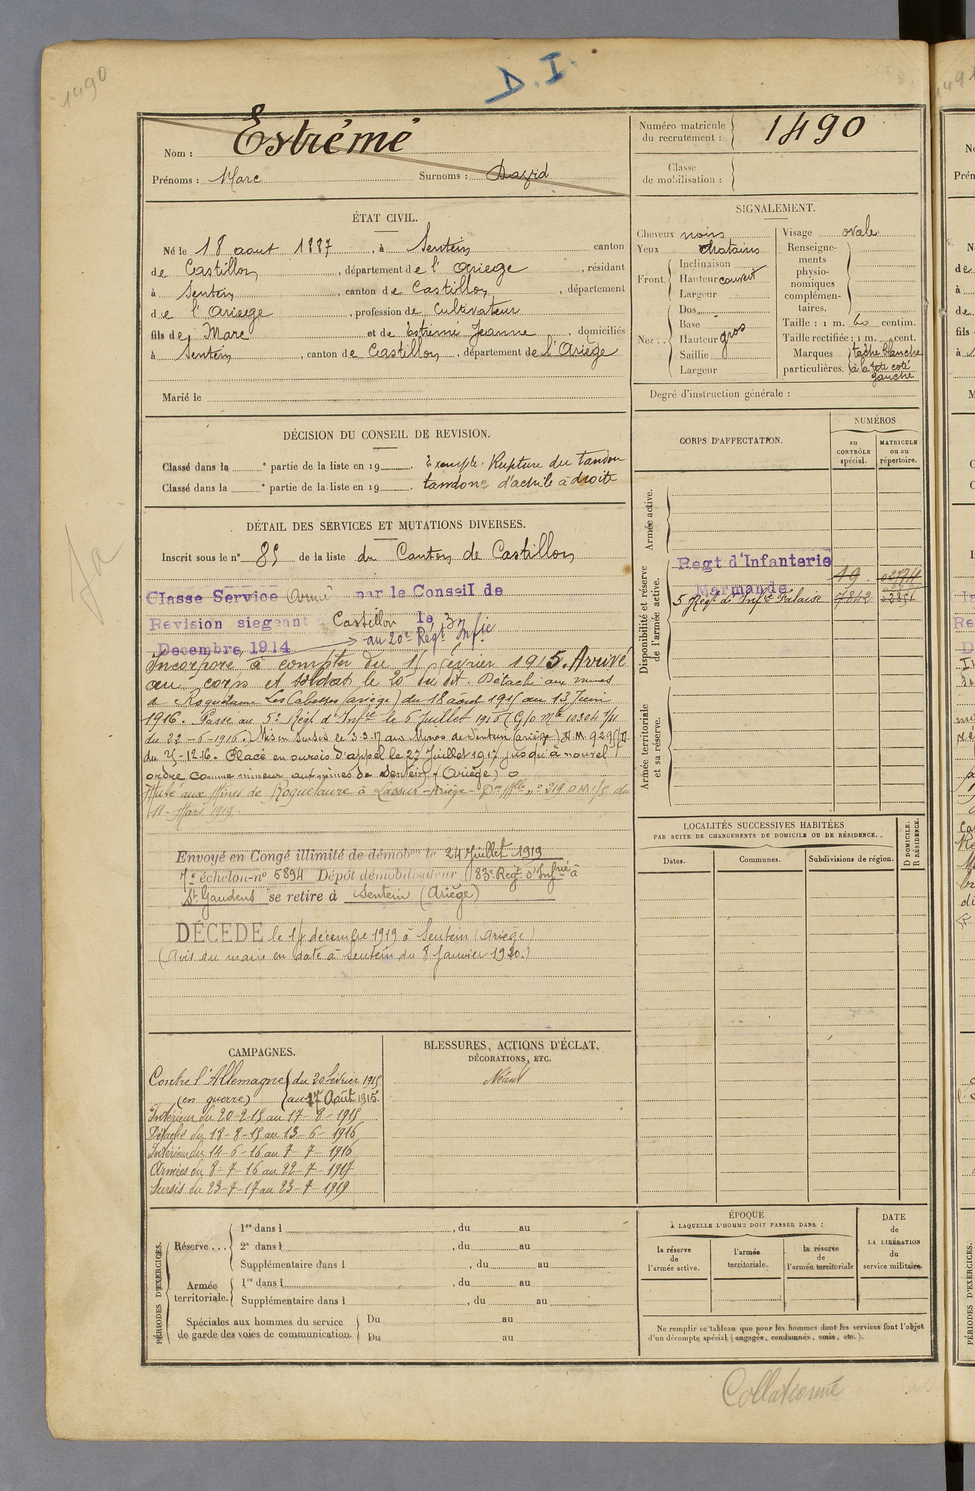 1490
D.I.
Nom : Estrémé
Prénoms : Marc Surnoms : David
Numéro matricule du recrutement : 1490
Classe de mobilisation :
ÉTAT CIVIL.
Né le 18 aout 1887, à Sentein canton
de Castillon, département de l'Ariege, résidant
à Sentein, canton de Castillon, département
de l'Ariege, profession de Cultivateur
fils de Marc et de Estrémé Jeanne, domiciliés
à Sentein, canton de Castillon, département de l'Ariège
Marié le
SIGNALEMENT.
Cheveux noirs
Yeux chatains
Front Inclinaison
Hauteur couvert
Largeur
Nez : Dos
Base
Hauteur gros
Saillie
Largeur
Visage ovale
Renseignements physionomiques complémentaires.
Taille : 1 m. 60 centim.
Taille rectifiée : 1 m. cent.
Marques particulières. tache blanche
à la tête coté
gauche
Degré d'instruction générale :
DÉCISION DU CONSEIL DE REVISION.
Classé dans la e partie de la liste en 19 . Exempté. Rupture du tandon
Classé dans la e partie de la liste en 19 . tandon d'achile à droite
DÉTAIL DES SERVICES ET MUTATIONS DIVERSES.
Inscrit sous le n° 85 de la liste du Canton de Castillon
Classe Service Armé par le Conseil de
Revision siegeant à Castillon le 30
Decembre 1914 au 20e Regt Infie
Incorporé à compter du février 1915. Arrivé
au corps et soldat le 20 du dit. Détaché aux mines
de Roquelaure Les Cabesses (ariège) du 18 août 1915 au 13 Juin
1916. Passé au 5e Régt d'Infie le 6 Juillet 1916
du 22-6-1916. Mis en sursis le 3.3.17 aux Mines de Sentein (ariège)
du -12-16. Placé en sursis d'appel le 23 Juillet 1917 jusqu'à nouvel
ordre comme mineur aux mines de Sentein (Ariège)
aux Mines de Roquelaure à Lassur - Ariège - n° 219 D.M. du
11 Mars 1919
Envoyé en Congé illimité de démobon le 24 Juillet 1919
7e échelon n° 5894 Dépôt démobilisateur 83e Regt d'Infrie à
St Gaudens se retire à Sentein (Ariège)
DÉCEDÉ le décembre 1919 à Sentein (Ariège)
(Avis du maire en date à Sentein du 8 Janvier 1920.)
CORPS D'AFFECTATION.
NUMÉROS
au CONTRÔLE spécial.
MATRICULE ou au répertoire.
Armée active.
Disponibilité et réserve de l'armée active.
Regt d'Infanterie
Marmande 19
5 Régt d'Infie Falaise 7842
Armée territoriale et sa réserve.
LOCALITÉS SUCCESSIVES HABITÉES
PAR SUITE DE CHANGEMENTS DE DOMICILE OU DE RÉSIDENCE.
Dates.
Communes.
Subdivisions de région.
D DOMICILE.
R RÉSIDENCE.
CAMPAGNES.
Contre l'Allemagne du 20 février 1915
(en guerre) au 17 Août 1915.
Intérieur du 20-2-15 au 17-8-1915
Détaché du 18-8-15 au 13-6-1916
Intérieur du 14-6-16 au 7-7-1916
Armées du 8-7-16 au 22-7-1917
Sursis du 23-7-17 au 23-7-1919
BLESSURES, ACTIONS D'ÉCLAT,
DÉCORATIONS, ETC.
Néant
PÉRIODES D'EXERCICES.
Réserve ... 1re dans l , du au
2e dans l , du au
Supplémentaire dans l , du au
Armée territoriale. 1re dans l , du au
Supplémentaire dans l , du au
Spéciales aux hommes du service
de garde des voies de communication.
Du au
Du au
ÉPOQUE
À LAQUELLE L'HOMME DOIT PASSER DANS :
la réserve de l'armée active.
l'armée territoriale.
la réserve de l'armée territoriale
DATE
de
LA LIBÉRATION
du
service militaire.
Ne remplir ce tableau que pour les hommes dont les services font l'objet
d'un décompte spécial (engagés, condamnés, omis, etc.).
Collationné